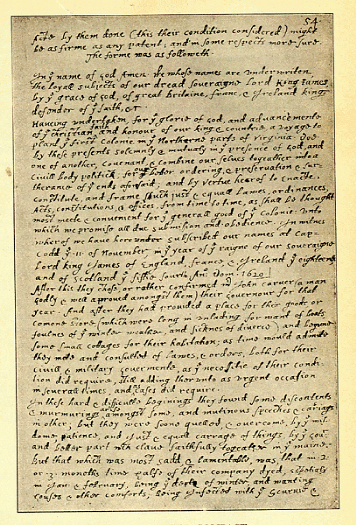 54
acte by them done (this their condition considered) might
be as firme as any patent; and in some respects more sure.
The forme was as followeth.
In yᵉ name of god Amen. We whose names are underwriten,
the loyall subjects of our dread soveraigne Lord King James
by yᵉ grace of god, of great Britaine, franc, & Ireland king,
defender of yᵉ faith, &c.
Haveing undertaken, for yᵉ glorie of god, and advancemente
of yᵉ christian and honour of our king & countrie, a voyage to
plant yᵉ first colonie in yᵉ Northerne parts of Virginia. Doe
by these presents solemnly & mutualy in yᵉ presence of god, and
one of another, covenant, & combine our selves togeather into a
civill body politick; for our better ordering, & preservation & fur-
therance of yᵉ ends aforesaid; and by vertue hearof to enacte,
constitute, and frame such just & equall Lawes, ordinances,
Acts, constitutions, & offices, from time to time, as shall be thought
most meete & convenient for yᵉ generall good of yᵉ colonie: unto
which we promise all due submission and obedience. In witnes
wherof we have hereunder subscribed our names at Cap-
Codd yᵉ 11 of November, in yᵉ year of yᵉ raigne of our soveraigne
Lord king James of England, france, & Ireland yᵉ eighteenth
and of Scotland yᵉ fiftie fourth. Ano Dom. 1620.
After this they chose, or rather confirmed mʳ John carver (a man
godly & well aproved amongst them) their Governour for that
year. And after they had provided a place for their goods, or
comone store, (which were long in unlading for want of boats,
foulnes of yᵉ winter weather, and sicknes of diverce) and begune
some small cottages for their habitation; as time would admitte
they mete and consulted of lawes, & orders, both for their
civill & military Govermente, as yᵉ necessitie of their condi-
tion did require, still adding therunto as urgent occasion
in severall times, and cases did require.
In these hard & difficulte beginings they found some discontents
& murmurings arise amongst some, and mutinous speeches & carriags
in other; but they were soone quelled, & overcome, by yᵉ wis-
dome, patience, and just & equall carrage of things, by yᵉ Govʳ
and better part wᶜʰ clave faithfully togeather in yᵉ maine.
But that which was most sadd, & lamentable, was, that in 2
or 3 moneths time halfe of their company dyed, espetialy
in Jan: & february, being yᵉ depth of winter, and wanting
houses & other comforts; being infected with yᵉ scurvie &